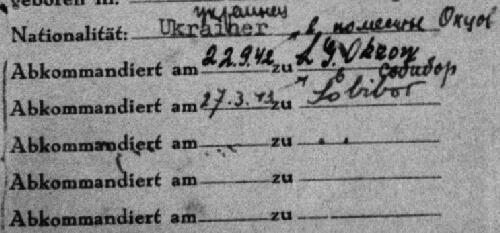 geboren in:
украинец
Nationalität: Ukrainer в поместье Окцов
Abkommandiert am 22.9.42 zu L. G. Okzow
в Собибор
Abkommandiert am 27.3.43 zu Sobibor
Abkommandiert am zu
Abkommandiert am zu
Abkommandiert am zu